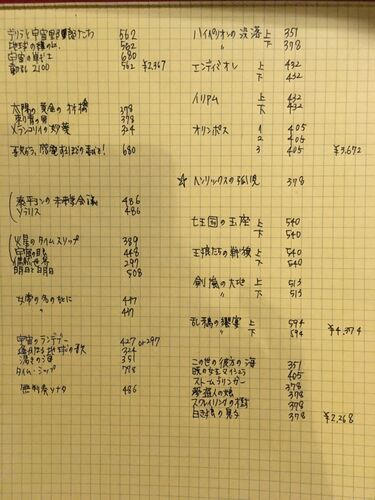 デリラと宇宙野郎たち 562
地球の緑の丘 562
宇宙の戦士 680
動乱2100 562 ¥2,367
太陽の黄金の林檎 378
刺青の男 378
メランコリイの妙薬 324
歌おう、感電するほどの喜びを! 680
泰平ヨンの未来学会議 486
ソラリス 486
火星のタイム・スリップ 389
宇宙の眼 448
297
明日と明日 508
女帝の名のもとに 497
〃 497
宇宙のランデヴー 427 or 297
遥かなる地球の歌 324
渇きの海 351
タイム・シップ 778
無伴奏ソナタ 486
ハイペリオンの没落 上 351
〃 下 378
エンディミオン 上 432
下 432
イリアム 上 432
下 432
オリンポス 1 405
2 405
3 405 ¥3,672
☆ ヘンリックスの 378
七王国の玉座 上 540
下 540
王狼たちの戦旗 上 540
下 540
剣嵐の大地 上 513
〃 下 513
乱鴉の饗宴 上 594
下 594 ¥4,374
この世の彼方の海 351
暁の女王マイシェラ 405
ストームブリンガー 378
夢盗人の娘 378
スクレイリングの樹 378
白き狼の息子 378 ¥2,268